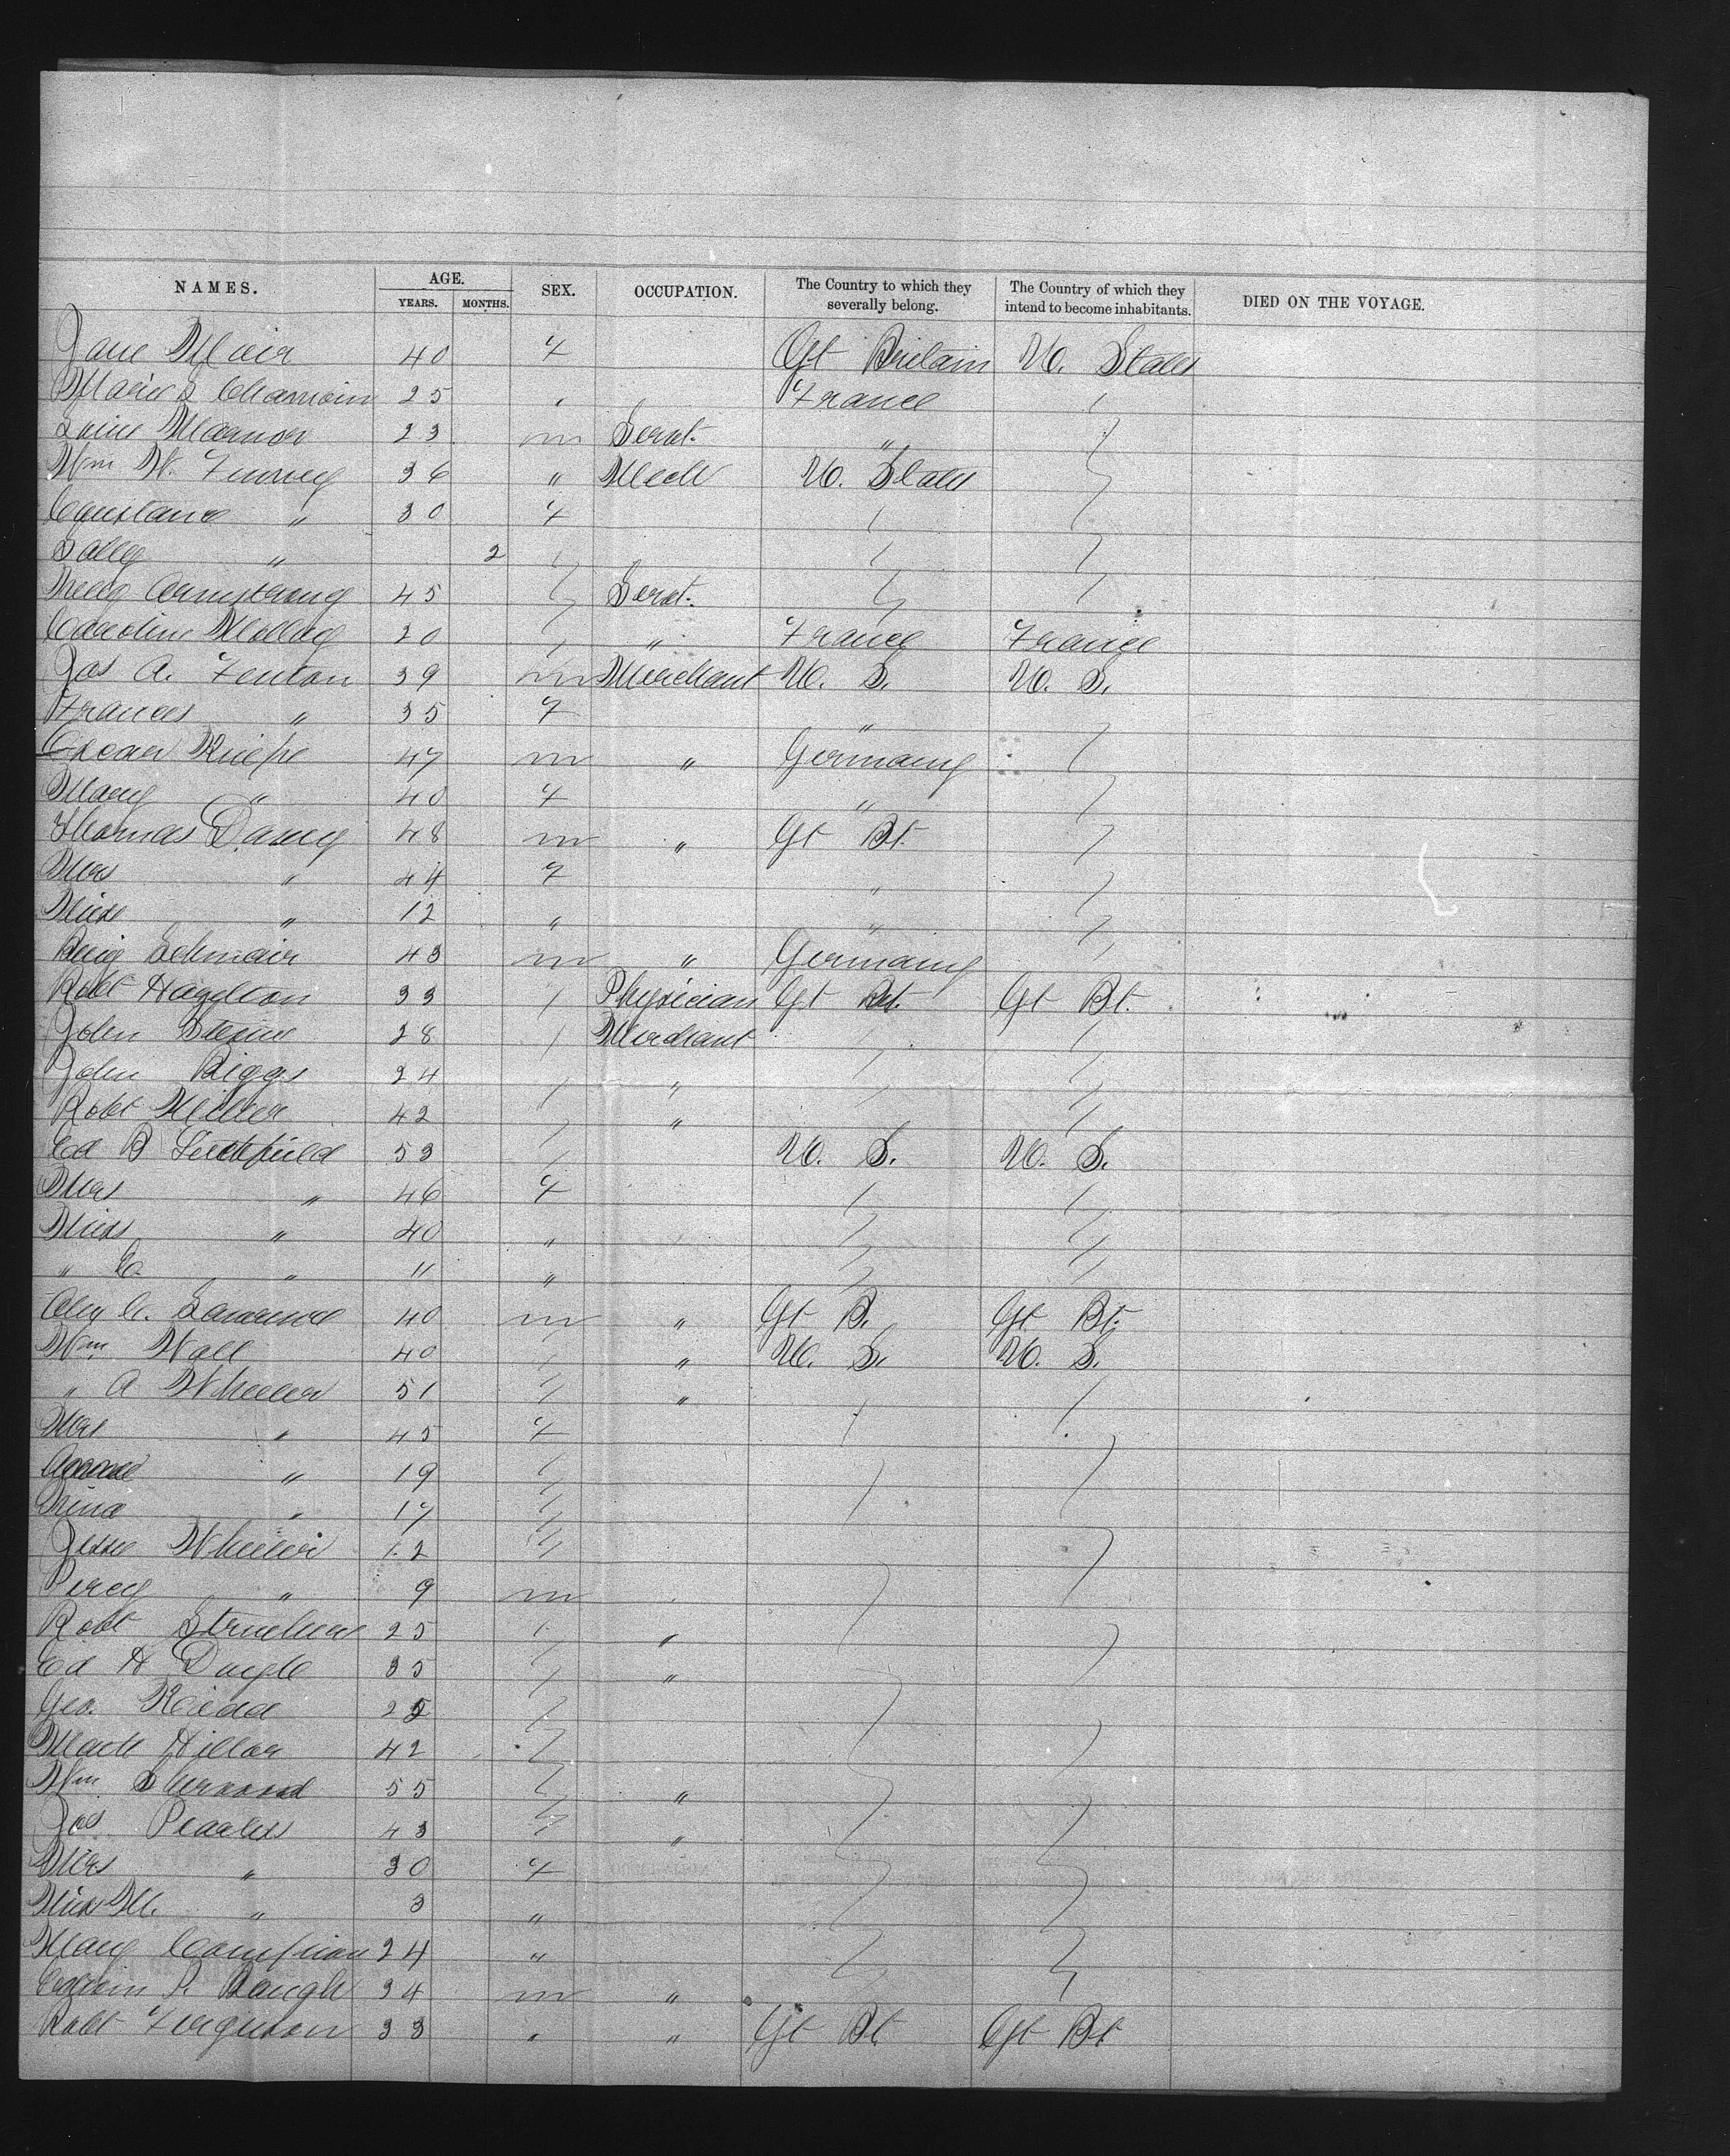 NAMES. AGE. SEX. OCCUPATION. The Country to which they severally belong. The Country of which they intend to become inhabitants. DIED ON THE VOYAGE.
YEARS. MONTHS.
Jane Muir 40 F Gt Britain U. States
Marie L 25 " France
23 m Servt. "
Wm W. 36 " Mech U. States
Constance " 30 F
Sally " 2
Armstrong 45 Servt.
Caroline 20 " France France
Jas A. Fenton 39 m Merchant U. S. U. S.
Frances " 35 F "
Oscar 47 m " Germany
Mary " 40 F "
Thomas Dancy 48 m " Gt Bt.
Mrs " 44 F "
Miss " 12 " "
43 m " Germany
Robt Hazelton 33 Physician Gt Bt. Gt Bt.
John 28 Merchant
John Biggs 24 "
Robt Miller 42 "
Ed B Litchfield 53 U. S. U. S.
Mrs " 46 F
Miss " 40 "
" E. " 11 "
Alex C. Lawrence 40 m " Gt B. Gt Bt.
Wm. Wall 40 " U. S. U. S.
" A Wheeler 51 "
Mrs " 45 F
" 19
Nina " 17
Jesse Wheeler 12
Percy " 9 m
Robt 25 "
Ed H 35 "
Geo. Kidd 25
Mark 42
Wm Sherwood 55 "
Jos 43 "
Mrs " 30 F
Miss M. " 3 "
Mary 24 "
Edwin P. Baugh 34 m "
Robt Ferguson 33 " " Gt Bt Gt Bt